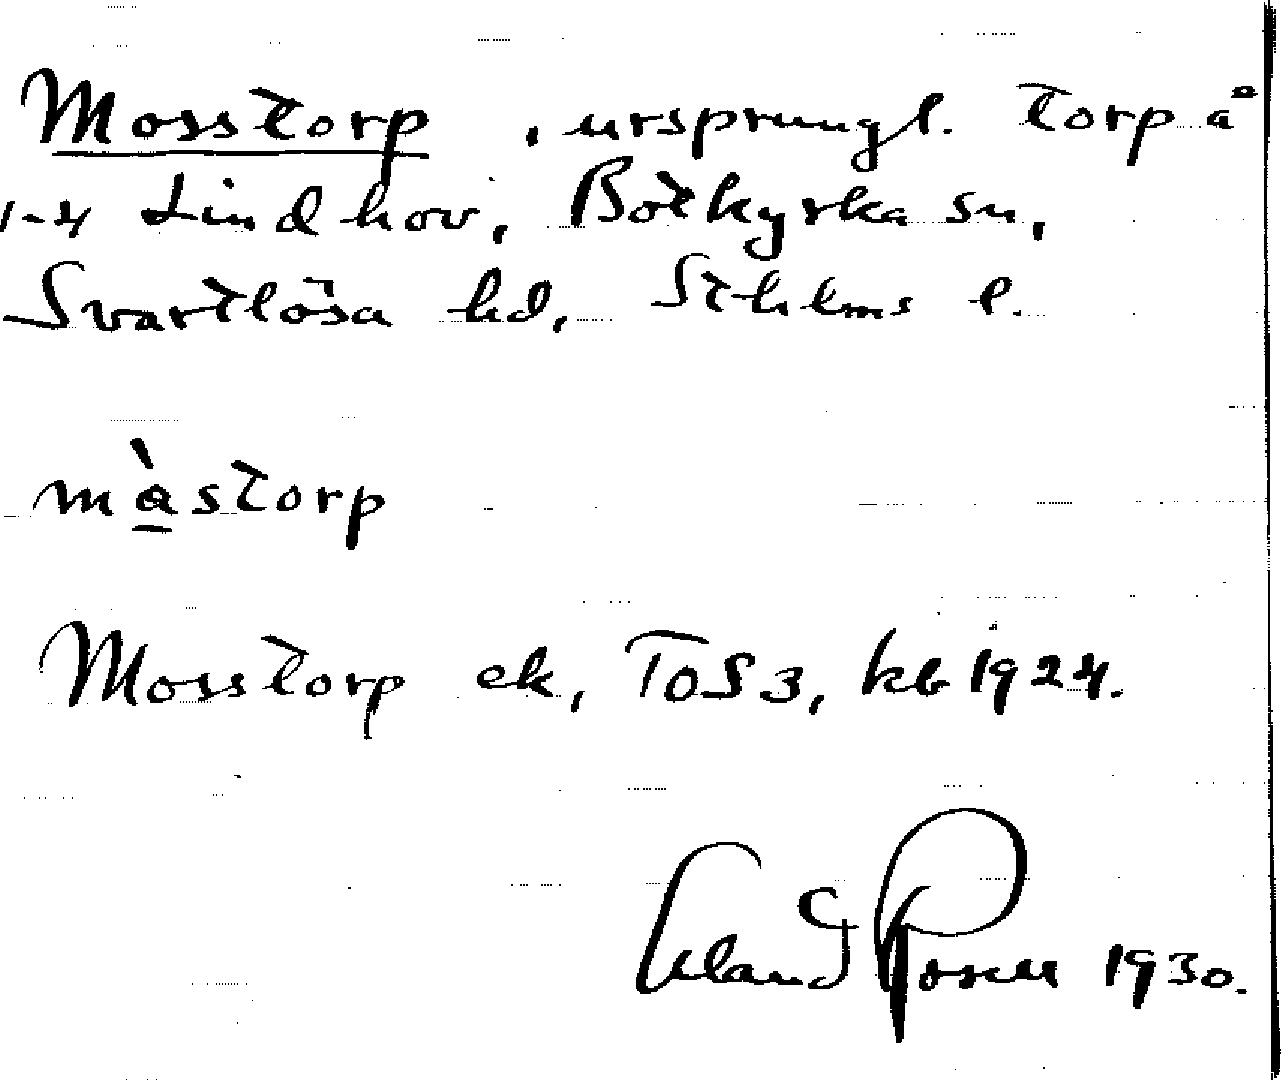 Mosstorp, ursprungl. torp å
1-4 Lindhov, Botkyrka sn,
Svartlösa hd, Sthlms l.
màstorp
Mosstorp ek, ToS 3, kb 1924.
Erland Rosell 1930.